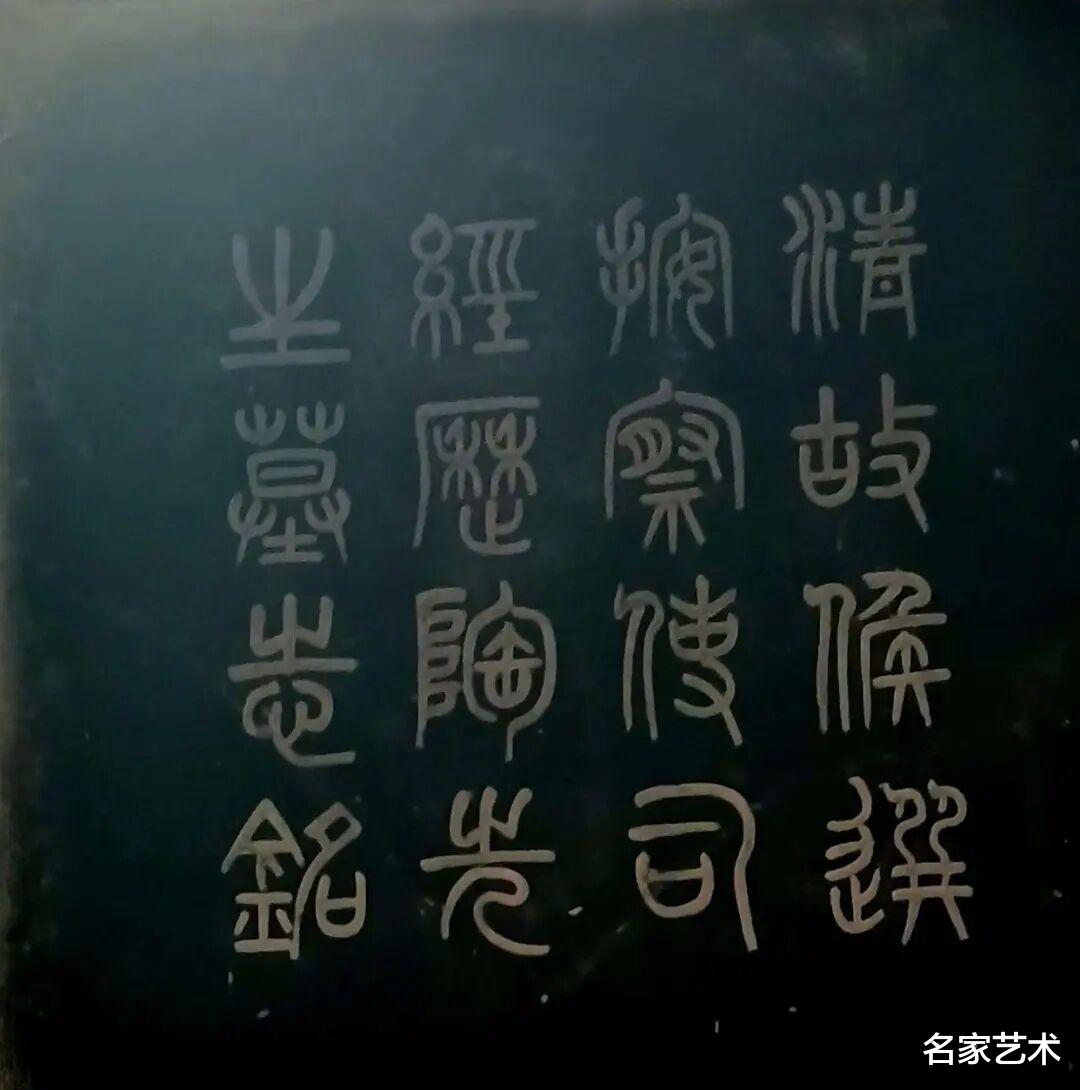 清故候選
按察使司
經歷陶先
生墓志銘
名家艺术